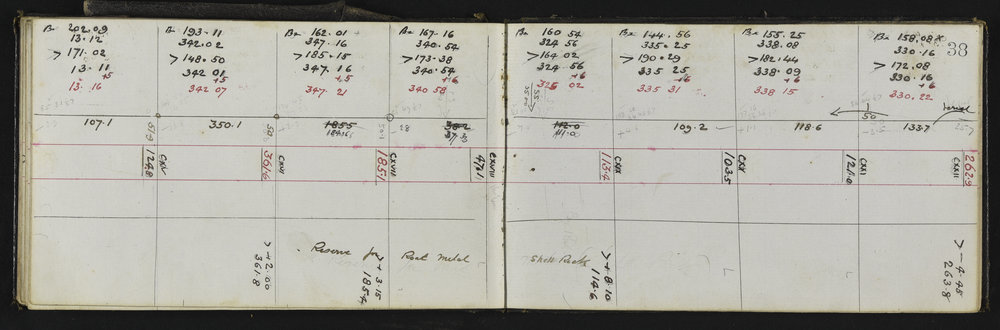 Bs 202.09
13.12
> 171.02
13.11
+5
13.16
Bs 193.11
342.02
> 148.50
342 01
+5
342 07
Bs 162.01 +
347.16
> 185.15
347.16
+5
347.21
Bs 167.16
340.54
> 173.38
340.54
+6
340 58
Bs 160 54
324 56
> 164 02
324.56
+6
325 02
Bs 144.56
335.25
> 190.29
335 25
+6
335 31
Bs 155.25
338.08
> 182.44
338.09
+6
338 15
Bs 158.08
330.16
> 172.08
330.16
+6
330.22
38
107.1
350.1
185.5
18
38.2
37.3
112.0
111.0
109.2
118.6
50
133.7
CXV
1248
CXVI
361.6
CXVII
185.1
CXVIII
CXIX
113.4
CXX
103.5
CXXI
121.0
CXXII
262.9
> + 2.00
361.8
Reserve for
> + 3.15
185.4
Road Metal
Shell Rock
> + 8.10
114.6
> - 4.45
263.8